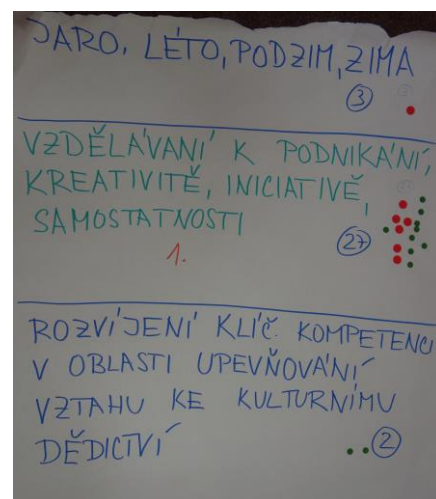 JARO, LÉTO, PODZIM, ZIMA
3
VZDĚLÁVANÍ K PODNIKÁNÍ,
KREATIVITĚ, INICIATIVĚ,
SAMOSTATNOSTI
27
1.
ROZVÍJENÍ KLÍČ. KOMPETENCÍ
V OBLASTI UPEVŇOVÁNÍ
VZTAHU KE KULTURNÍMU
DĚDICTVÍ
2